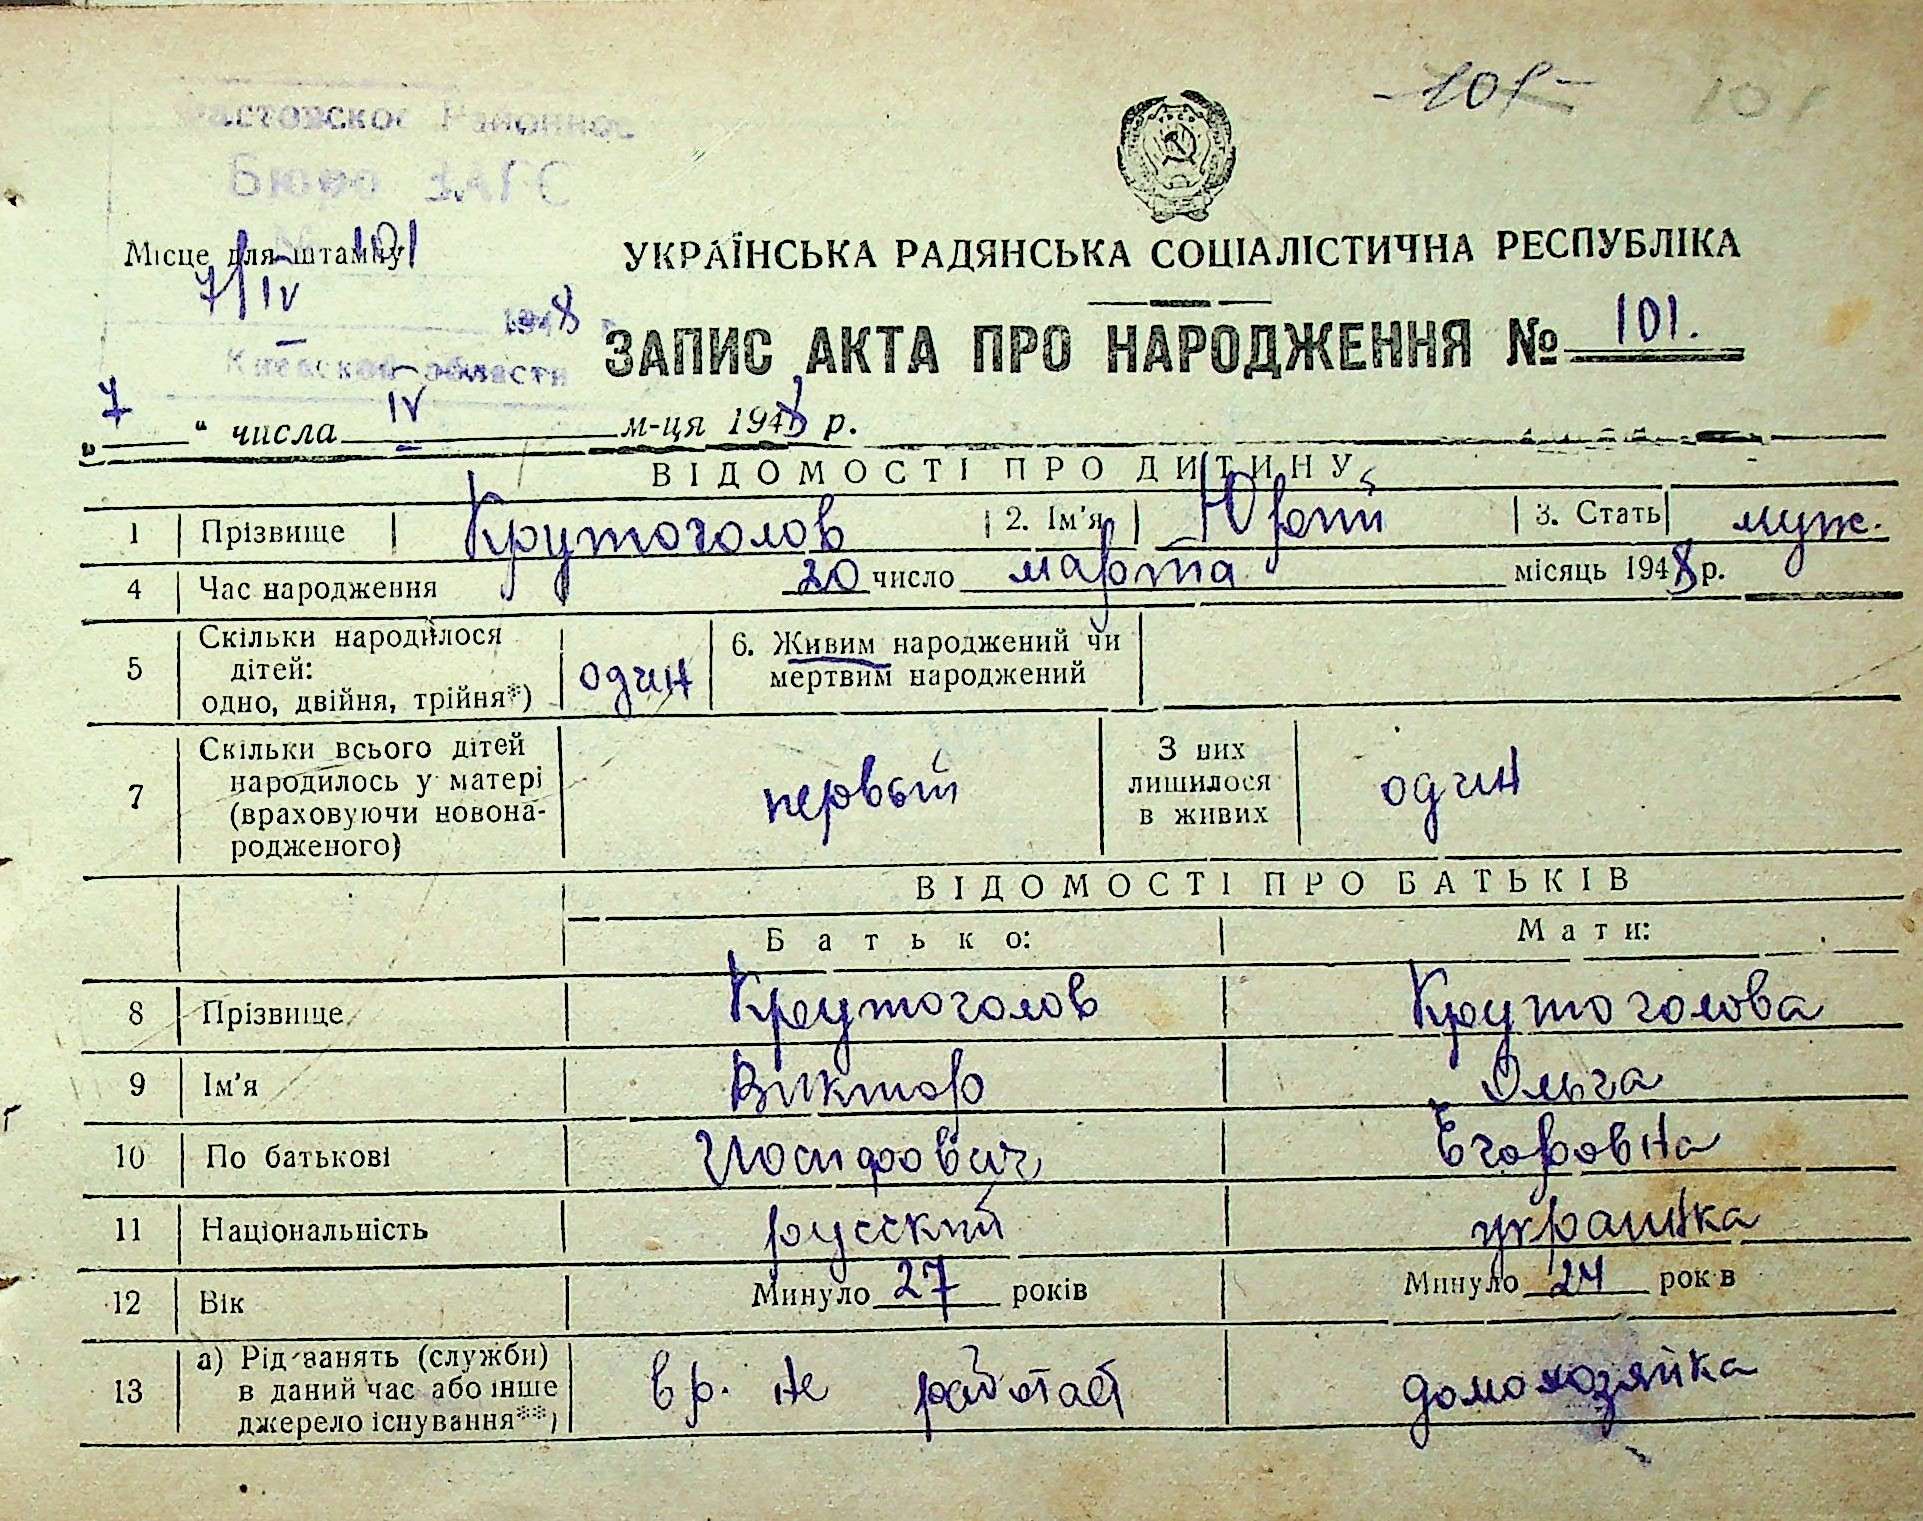 -101- 101
Районное
Бюро ЗАГС
Місце для штампу 101
7/IV 1948
Киевской области
УКРАЇНСЬКА РАДЯНСЬКА СОЦІАЛІСТИЧНА РЕСПУБЛІКА
ЗАПИС АКТА ПРО НАРОДЖЕННЯ № 101.
„7“ числа IV м-ця 1948 р.
ВІДОМОСТІ ПРО ДИТИНУ
1 Прізвище Крутоголов 2. Ім'я Юрий 3. Стать муж.
4 Час народження 20 число марта місяць 1948 р.
5 Скільки народилося дітей: одно, двійня, трійня*) один 6. Живим народжений чи мертвим народжений
7 Скільки всього дітей народилось у матері (враховуючи новонародженого) первый З них лишилося в живих один
ВІДОМОСТІ ПРО БАТЬКІВ
Батько: Мати:
8 Прізвище Крутоголов Крутоголова
9 Ім'я Виктор Ольга
10 По батькові Иосифович Егоровна
11 Національність русский украинка
12 Вік Минуло 27 років Минуло 24 років
13 а) Рід занять (служби) в даний час або інше джерело існування**) вр. не работает домохозяйка